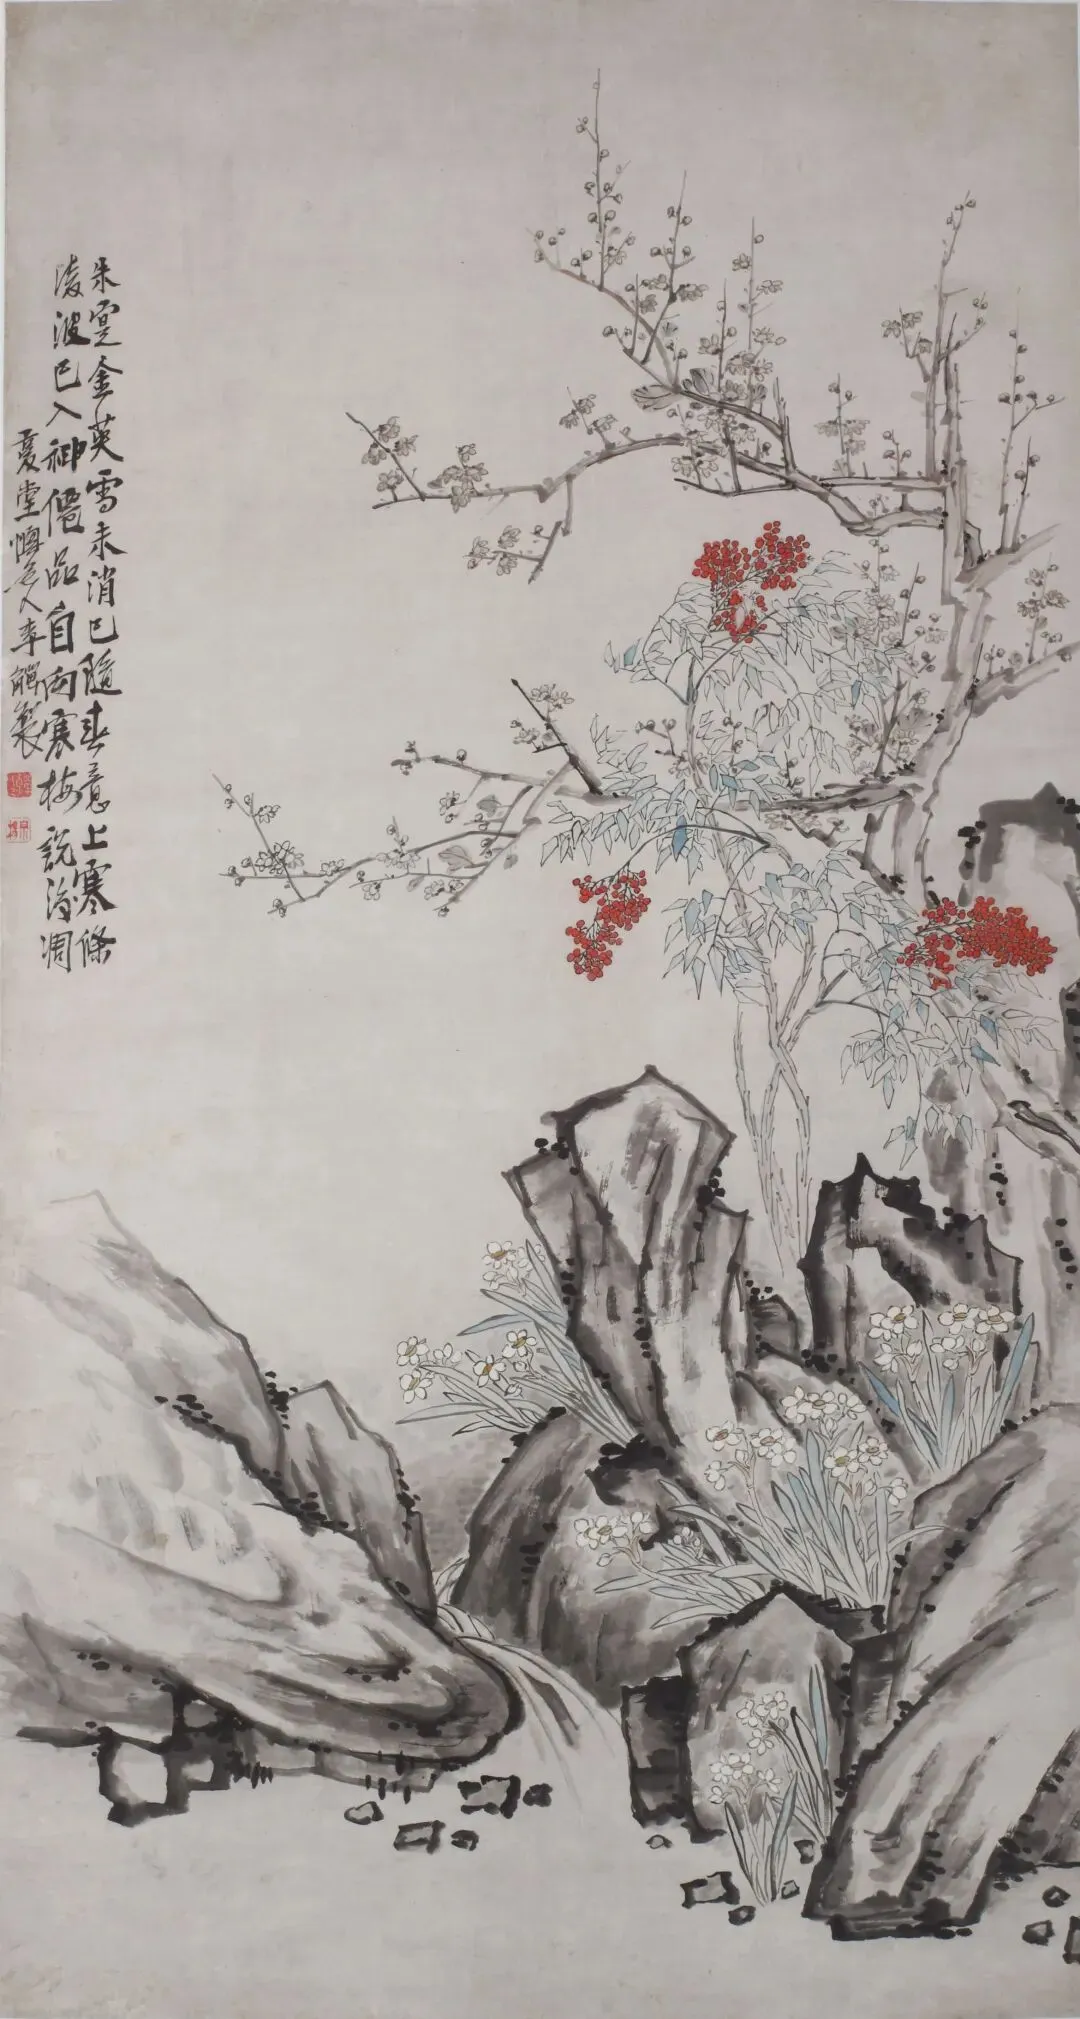 朱寔金英雪未消已隨春意上寒條
淩波已入神僊品自向寒梅說後凋
复堂懊道人李鱓製